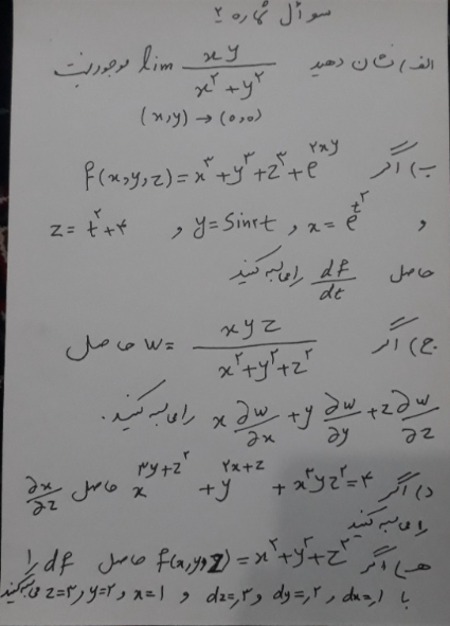 سوال شماره ۲
الف) نشان دهید lim xy / (x^۲ + y^۲) موجود نیست
(x,y) → (۰,۰)
ب) اگر f(x,y,z) = x^۳ + y^۳ + z^۳ + e^{۲xy}
و x = e^{t^۲} , y = Sin۲t , z = t^۲ + ۴
حاصل df/dt را محاسبه کنید
ج) اگر w = xyz / (x^۲ + y^۲ + z^۲) حاصل
x ∂w/∂x + y ∂w/∂y + z ∂w/∂z را محاسبه کنید.
د) اگر x^{۳y+z^۲} + y^{۲x+z} + x^۳yz^۲ = ۴ حاصل ∂x/∂z
را محاسبه کنید
هـ) اگر f(x,y,z) = x^۲ + y^۲ + z^۲ حاصل df را
با dx=۰٫۱ , dy=۰٫۲ , dz=۰٫۳ و x=۱ , y=۲ , z=۳ محاسبه کنید